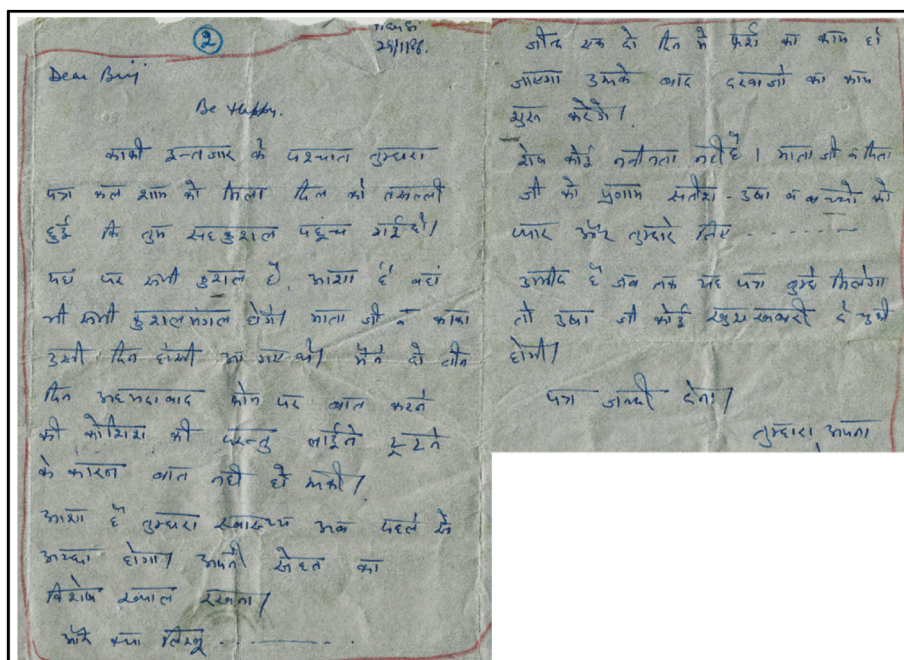 ②
Dear Brij
Be Happy.
काफी इन्तजार के पश्चात तुम्हारा
पत्र कल शाम को मिला दिल को तसल्ली
हुई कि तुम सहकुशल पहुंच गई हो।
यहां पर सभी कुशल है, आशा है वहां
भी सभी कुशलमंगल होगें। माता जी व काका
उसी दिन हांसी आ गए थे। मैंने दो तीन
दिन अहमदाबाद फोन पर बात करने
की कोशिश की परन्तु लाईने टूटने
के कारन बात नही हो सकी।
आशा है तुम्हारा स्वास्थ्य अब पहले से
अच्छा होगा। अपनी सेहत का
विशेष ख्याल रखना।
और क्या लिखू . ———
एक दो दिन मे फर्श का काम हो
जाएगा उसके बाद दरवाजो का काम
शुरू करेगे।
शेष कोई नवीनता नही है। माता जी व पिता
जी को प्रणाम सतीश - उषा व बच्चो को
प्यार और तुम्हारे लिए - - - - - - -
उम्मीद है जब तक यह पत्र तुम्हे मिलेगा
तो उषा जी कोई खुशखबरी दे चुकी
होगी।
पत्र जल्दी देना।
तुम्हारा अपना